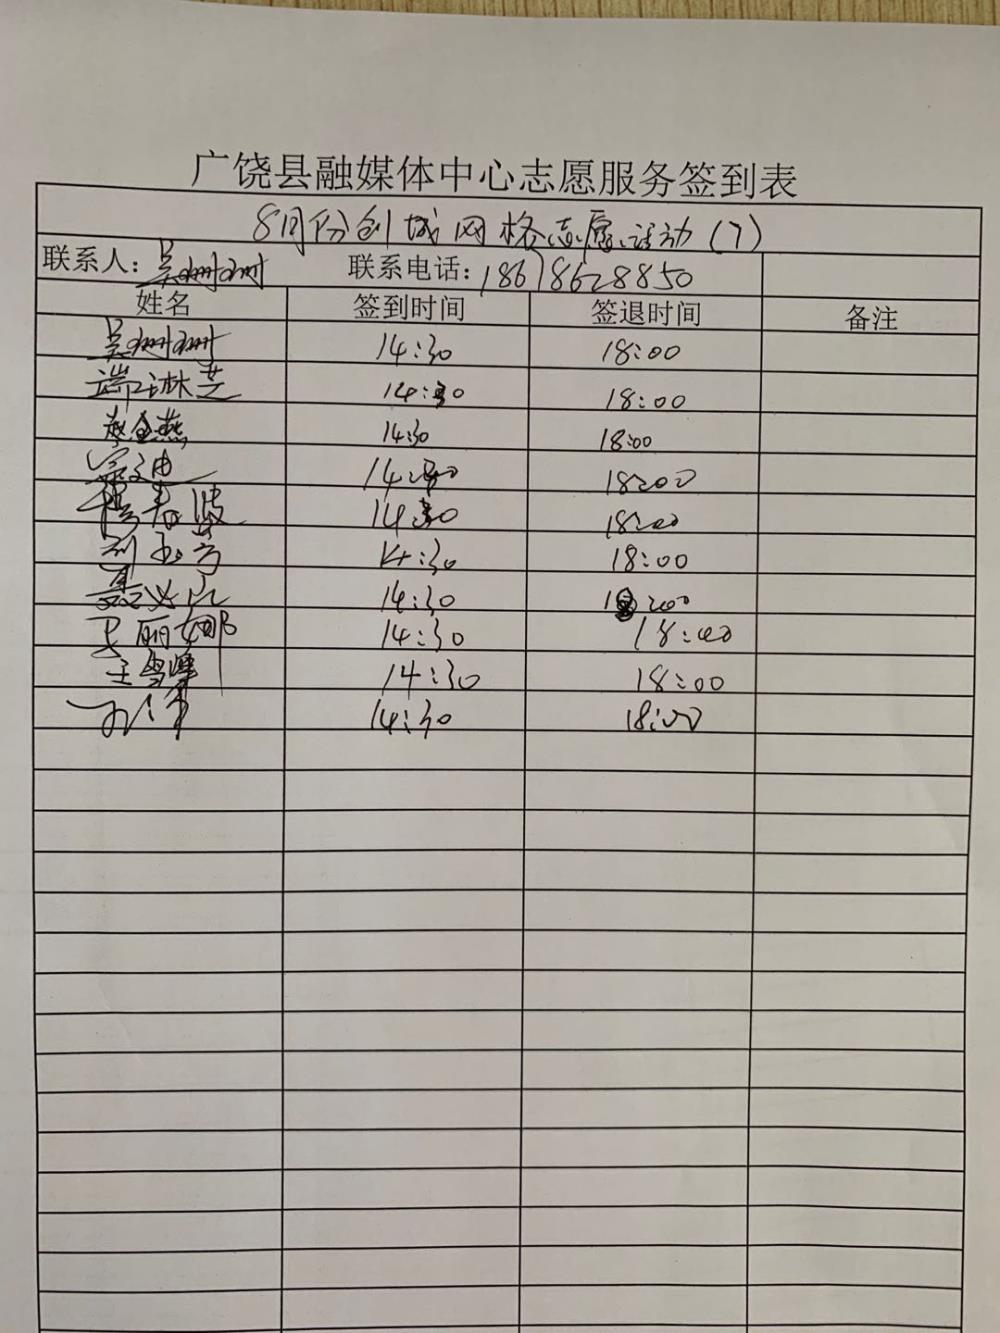 广饶县融媒体中心志愿服务签到表
8月份创城网格志愿活动(7)
联系人:吴珊珊 联系电话:18678628850
姓名 签到时间 签退时间 备注
吴珊珊 14:30 18:00
端琳芝 14:30 18:00
14:30 18:00
14:30 18:00
14:30 18:00
14:30 18:00
14:30 18:00
丽娜 14:30 18:00
王雪 14:30 18:00
14:30 18:00